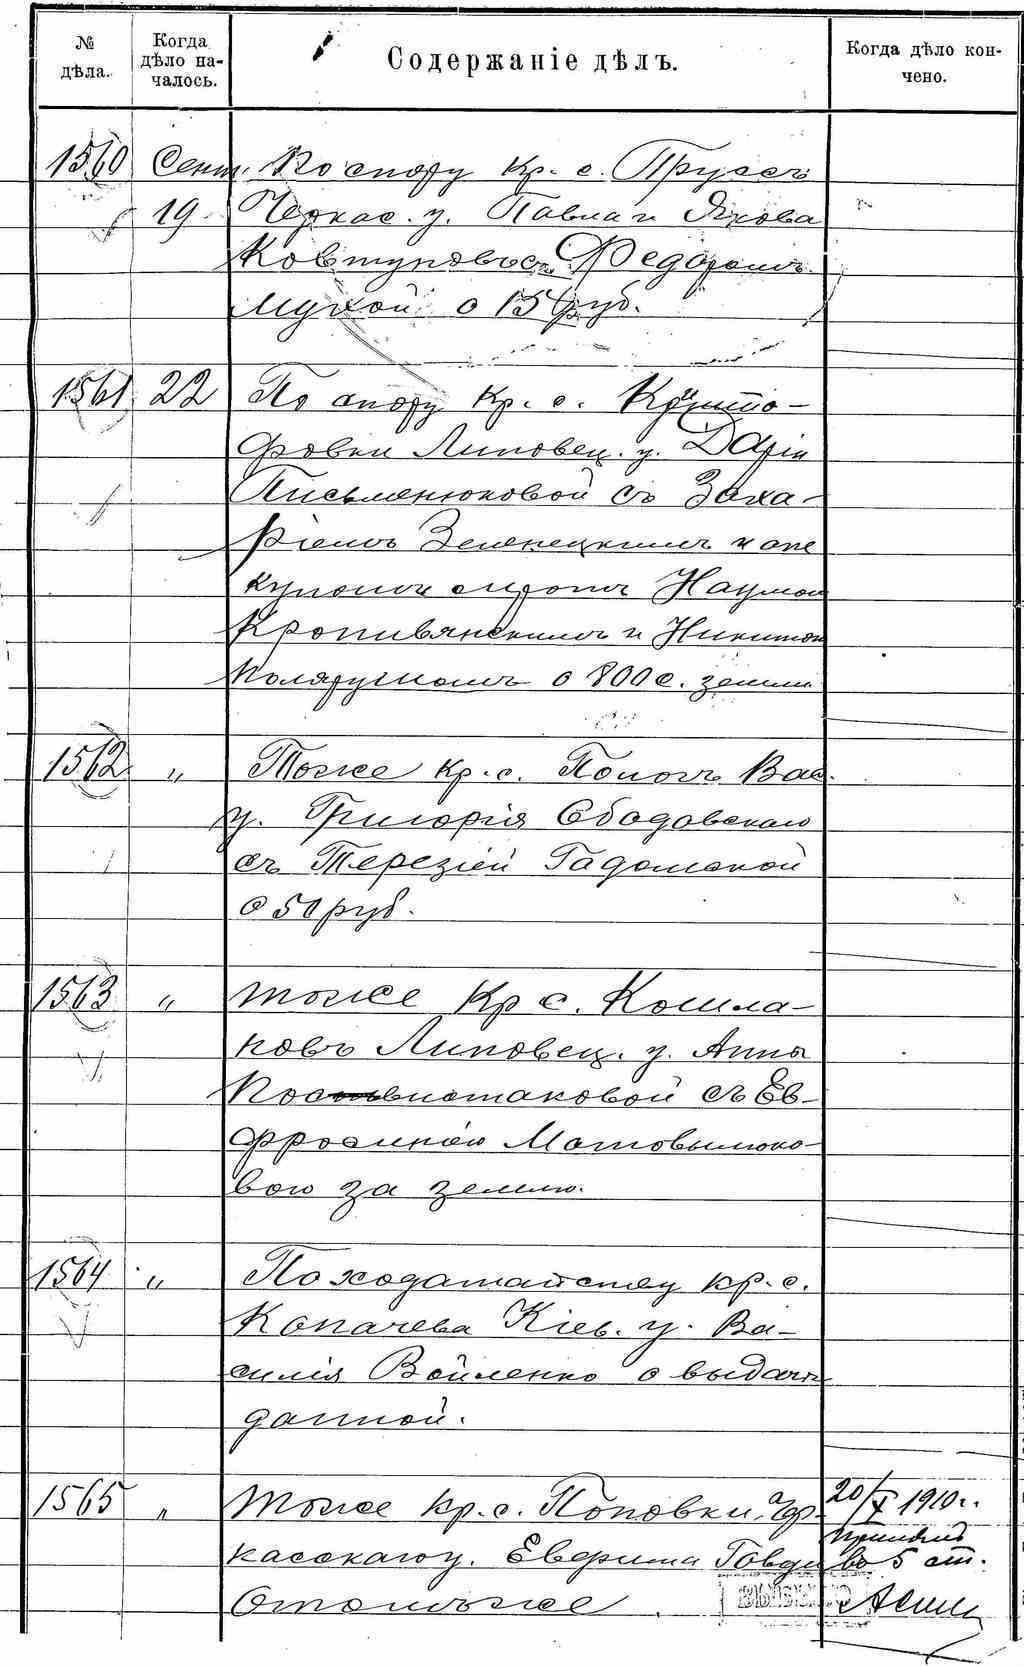 № дѣла.
Когда дѣло на-
чалось.
Содержаніе дѣлъ.
Когда дѣло кон-
чено.
1560 Сент. По спору кр. с. Пруссъ
19 Черкас. у. Павла и Якова
Ковтуновыхъ съ Федоромъ
Мухой о 15 руб.
1561 22 По спору кр. с. Кришто-
фовки Липовец. у. Даріи
Письменюковой съ Заха-
ріемъ Зеленецкимъ и опе
куномъ сиротъ Наумом
Кропивянскимъ и Никитою
о 800 с. земли
1562 „ Тоже кр. с. Вас.
у. Григорія Сбадовскаго
съ Терезіей Гадомской
о 50 руб.
1563 „ Тоже кр. с. Кошла-
ковъ Липовец. у. Анны
съ Ев-
фросиніею
вою за землю.
1564 „ По ходатайству кр. с.
Копачева Кіев. у. Ва-
силія Войленко о выдачѣ
данной.
1565 „ Тоже кр. с. Поповки, Чер-
касскаго у. Евфима
О томъ же
20/X 1910 г.
принялъ
во 5 ст.